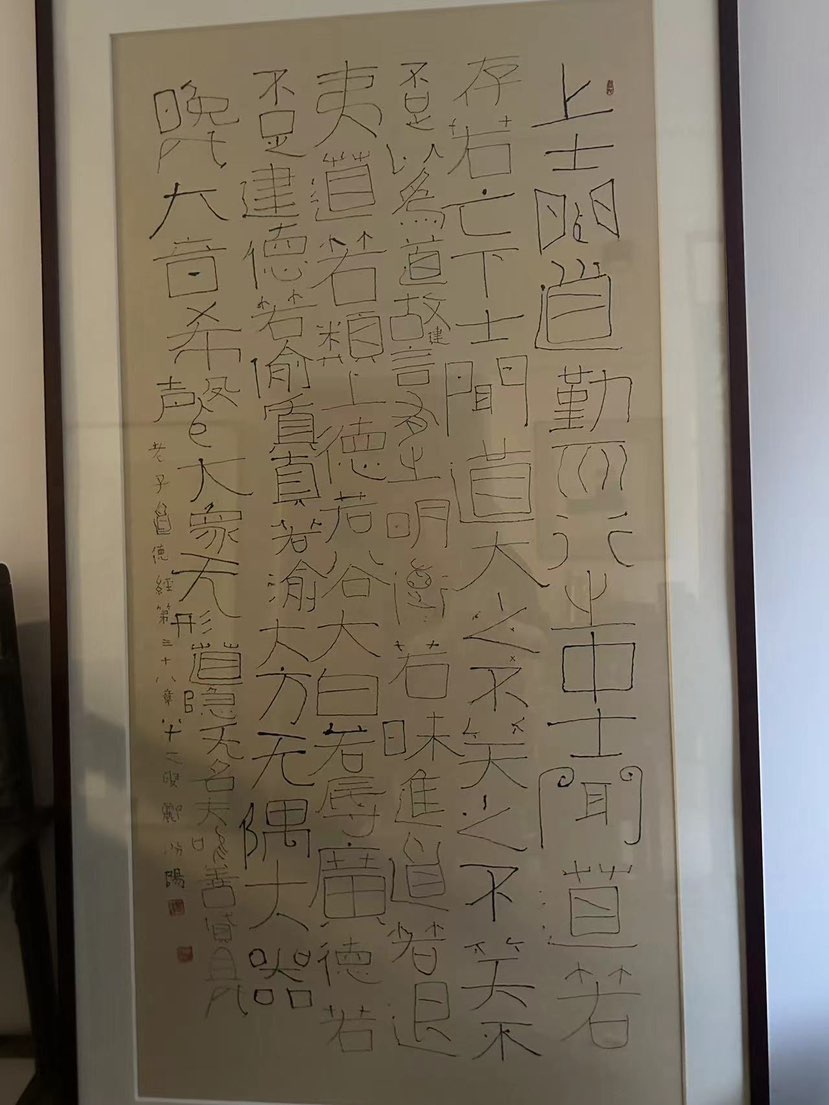 上士聞道勤而行之中士聞道若
存若亡下士聞道大之不笑之不笑不
不足以為道故建言有之明道若昧進道若退
夷道若類上德若谷大白若辱廣德若
不足建德若偷質真若渝大方无隅大器
晚大音希聲大象无形道隱无名夫
老子道德經第三十八章八十二叟